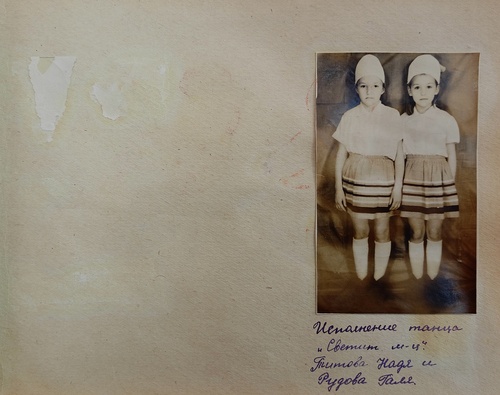 Исполнение танца
„Светит м-ц".
Титова Надя и
Рудова Галя.